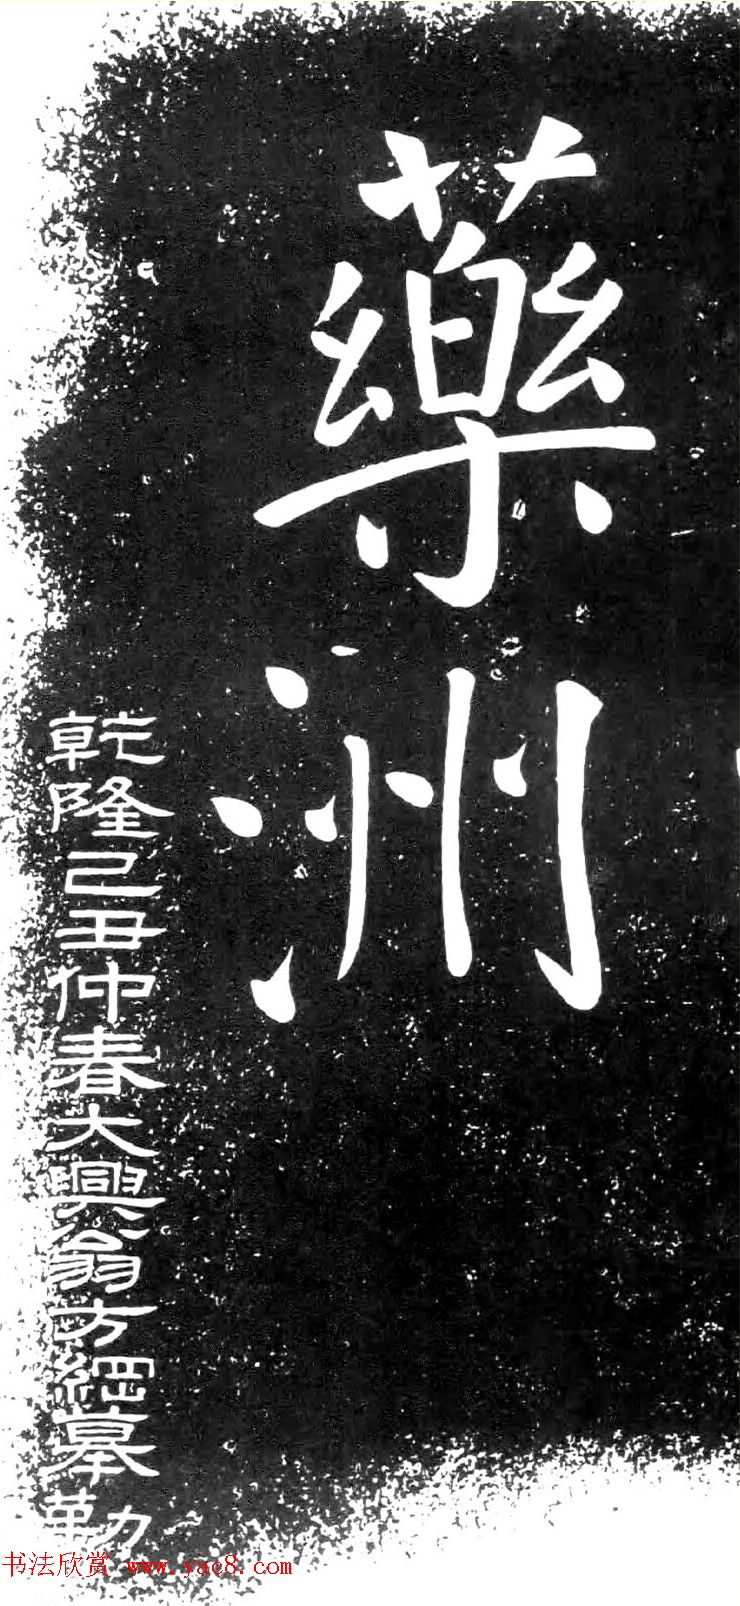 藥洲
乾隆己丑仲春大興翁方綱摹勒
书法欣赏 www.yac8.com